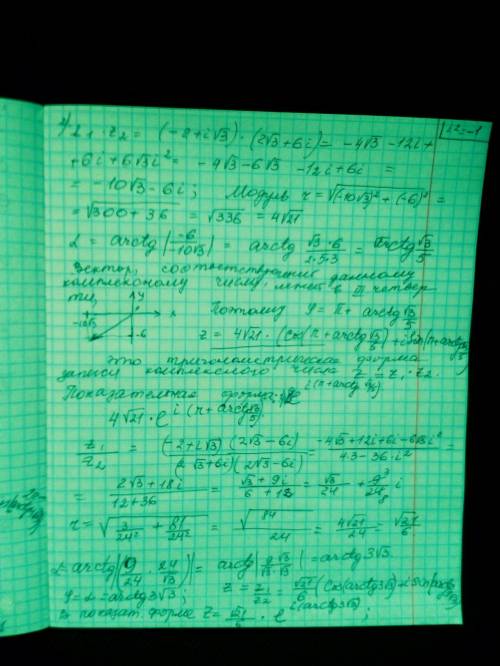 z₁·z₂ = (-2+i√3)·(2√3+6i) = -4√3 -12i+
i²=-1
+6i+6√3i² = -4√3-6√3 -12i+6i =
= -10√3-6i; Модуль r=√(-10√3)²+(-6)² =
= √300+36 = √336 = 4√21
α = arctg |-6/-10√3| = arctg √3·6/2·5·3 = arctg √3/5
Вектор, соответствующий данному
комплексному числу, лежит в III четвер
ти,
y
x
-10√3
-6
Поэтому φ = π+ arctg √3/5
z = 4√21 · (cos(π+arctg √3/5)+i sin(π+arctg √3/5)
Это тригонометрическая форма
записи комплексного числа z = z₁·z₂.
Показательная форма:
4√21·e^i(π+arctg √3/5)
z₁/z₂ = (-2+i√3)(2√3-6i)/(2√3+6i)(2√3-6i) = -4√3+12i+6i-6√3i²/4·3-36·i² =
= 2√3+18i/12+36 = √3+9i/6+18 = √3/24 + 9/24 i
r = √3/24² + 81/24² = √84/24 = 4√21/24 = √21/6
α=arctg|9/24 · 24/√3| = arctg|9√3/√3·√3| = arctg 3√3.
φ=α=arctg3√3; z = z₁/z₂ = √21/6 (cos(arctg3√3)+i sin(arctg 3√3)
В показат. форме z = √21/6 · e^i(arctg3√3);